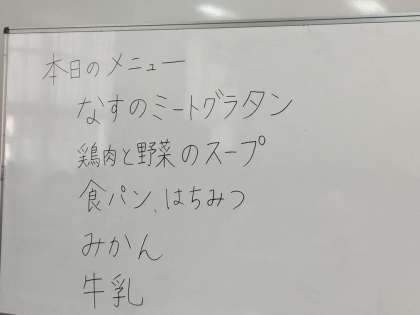 本日のメニュー
なすのミートグラタン
鶏肉と野菜のスープ
食パン、はちみつ
みかん
牛乳